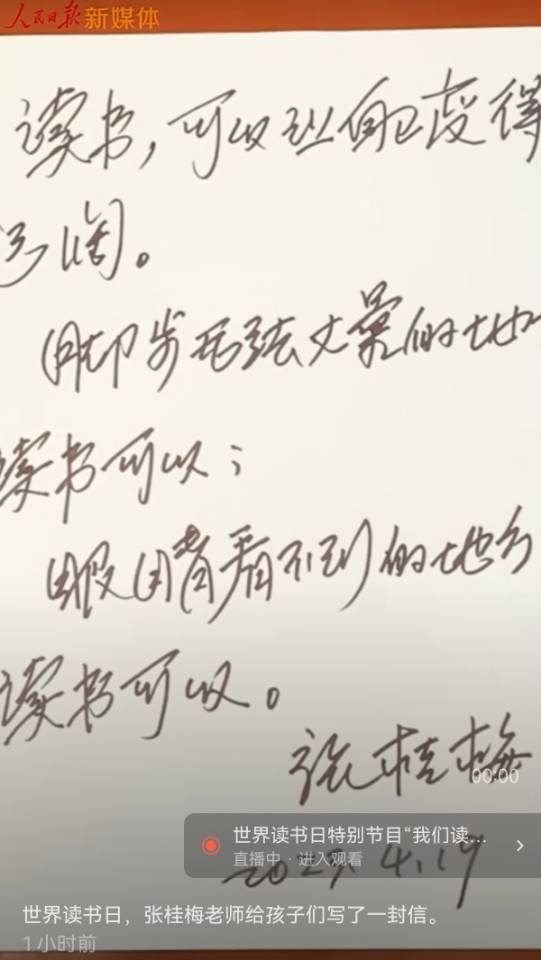 人民日报 新媒体
读书，可以让自己变得
辽阔。
用脚步无法丈量的地
读书可以；
眼睛看不到的地方
读书可以。
张桂梅
00:00
世界读书日特别节目“我们读...
直播中 · 进入观看
4.19
世界读书日，张桂梅老师给孩子们写了一封信。
1小时前